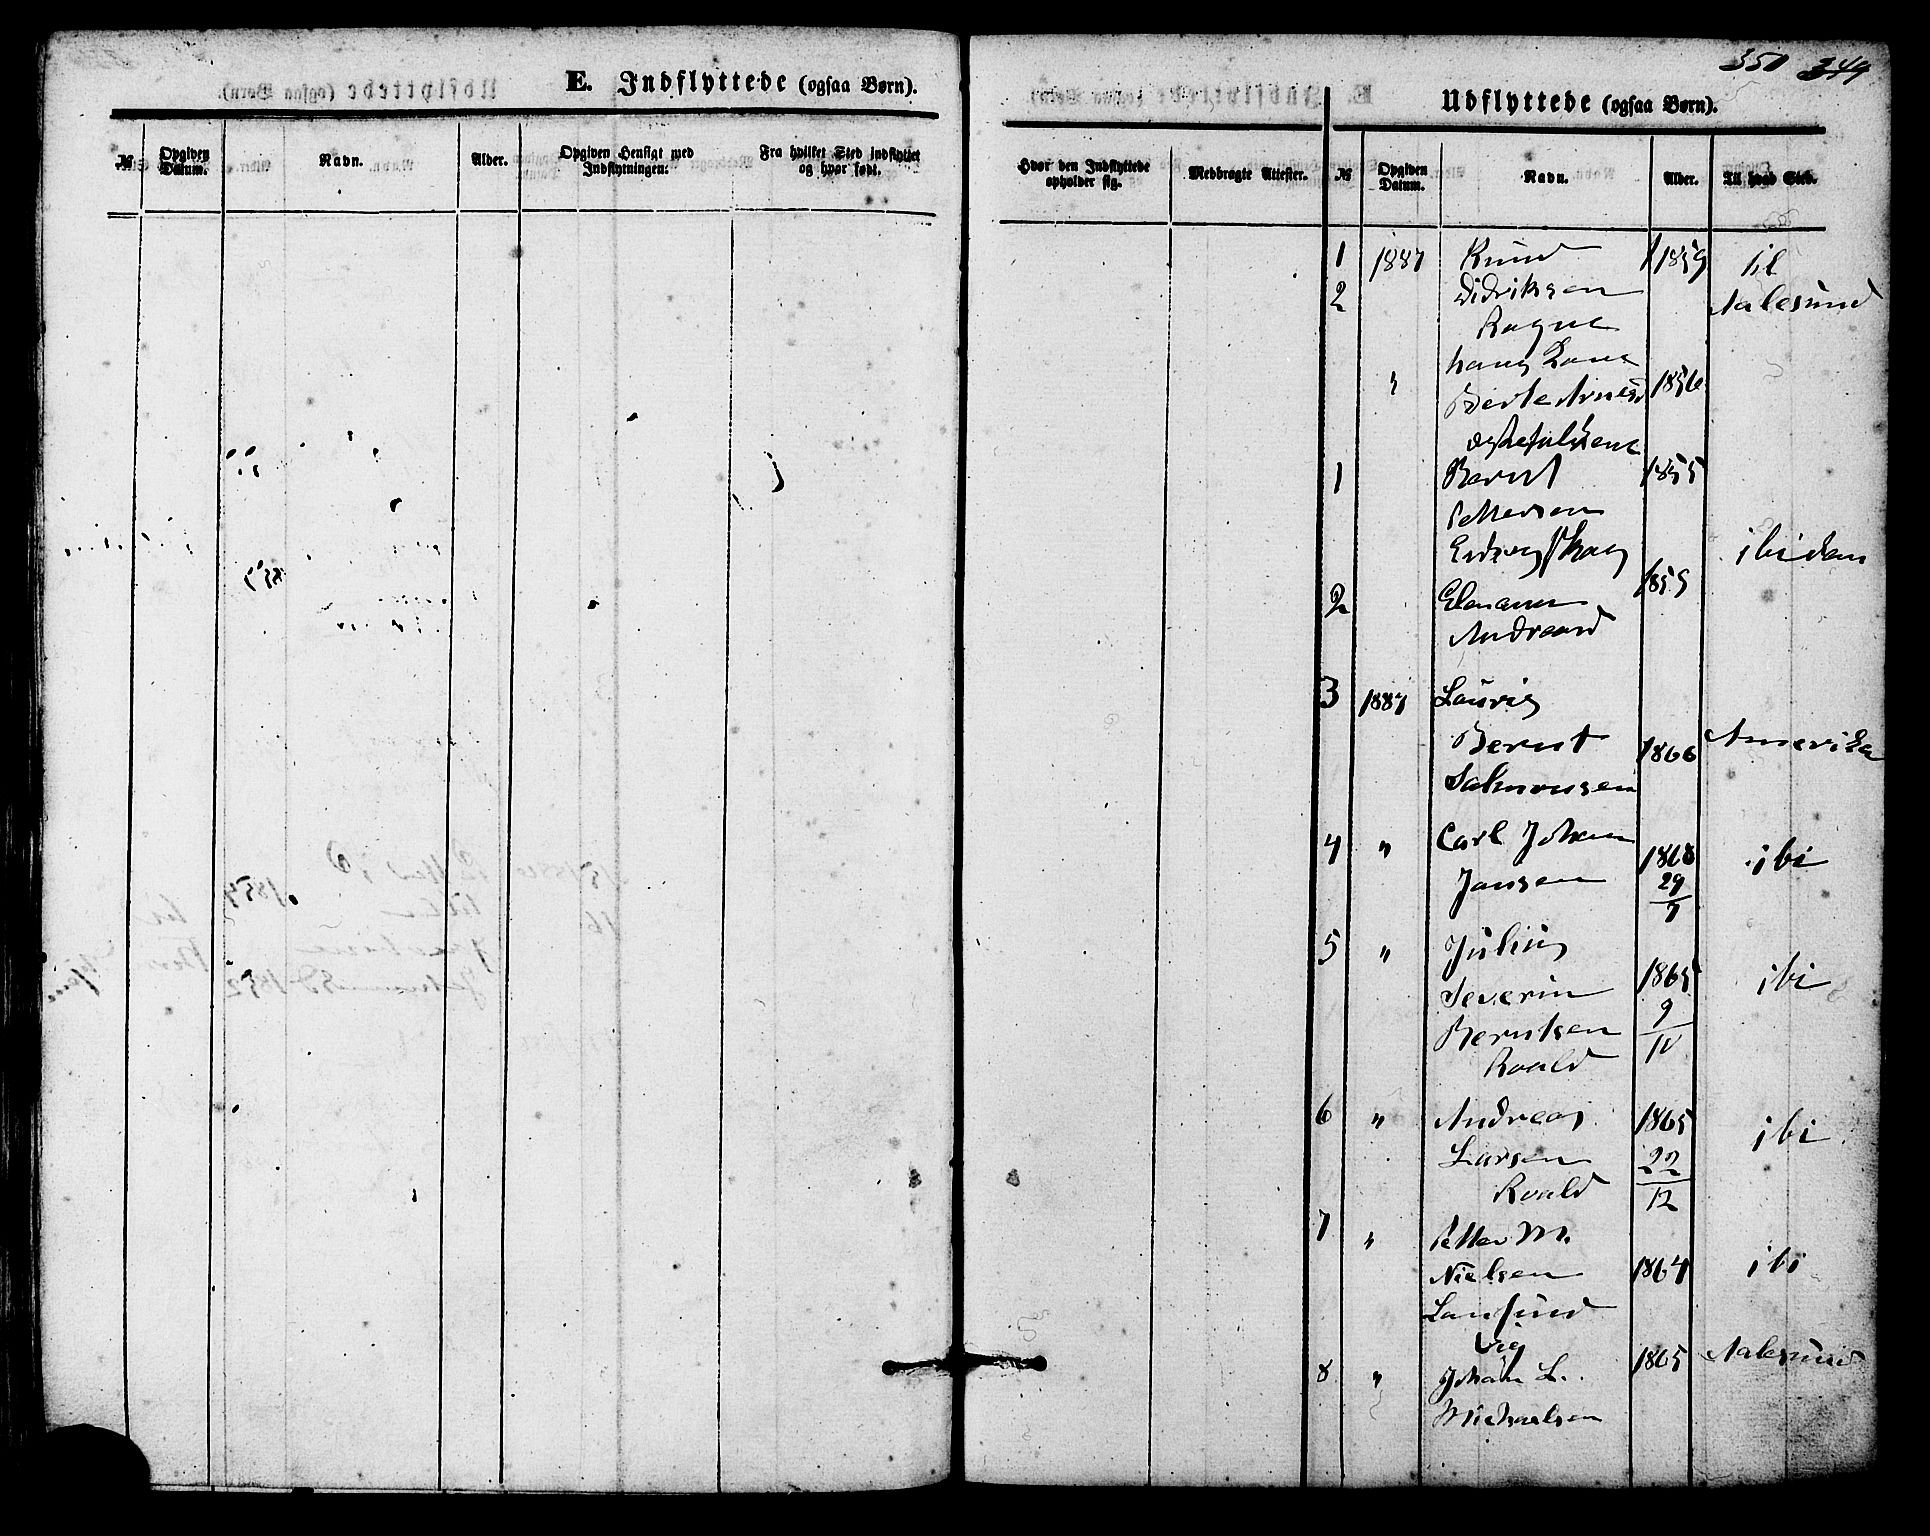 350 349
E. Indflyttede (ogsaa Børn).
№
Opgiven Datum.
Navn.
Alder.
Opgiven Hensigt med Indflytningen.
Fra hvilket Sted indflyttet og hvor født.
Hvor den Indflyttede opholder sig.
Medbragte Attester.
Udflyttede (ogsaa Børn).
№
Opgiven Datum.
Navn.
Alder.
Til hvad Sted.
1 1887 Knud 1859 til
2 Didriksen Aalesund
Rogne
hans Kone
" Berte 1856
1 Bernt 1855
Pettersen
ibidem
2 1859
Andreasd
3 1887 Lauris
Bernt 1866 Amerika
Salmonsen
4 " Carl Johan 1868 ibi
Jansen 29/7
5 " Julius
Severin 1865 ibi
Berntsen 9/10
Roald
6 " Andreas 1865 ibi
Larsen 22/12
Roald
7 " Petter M.
Nielsen 1864 ibi
vig
8 " Johan L. 1865 Aalesund
Michaelsen